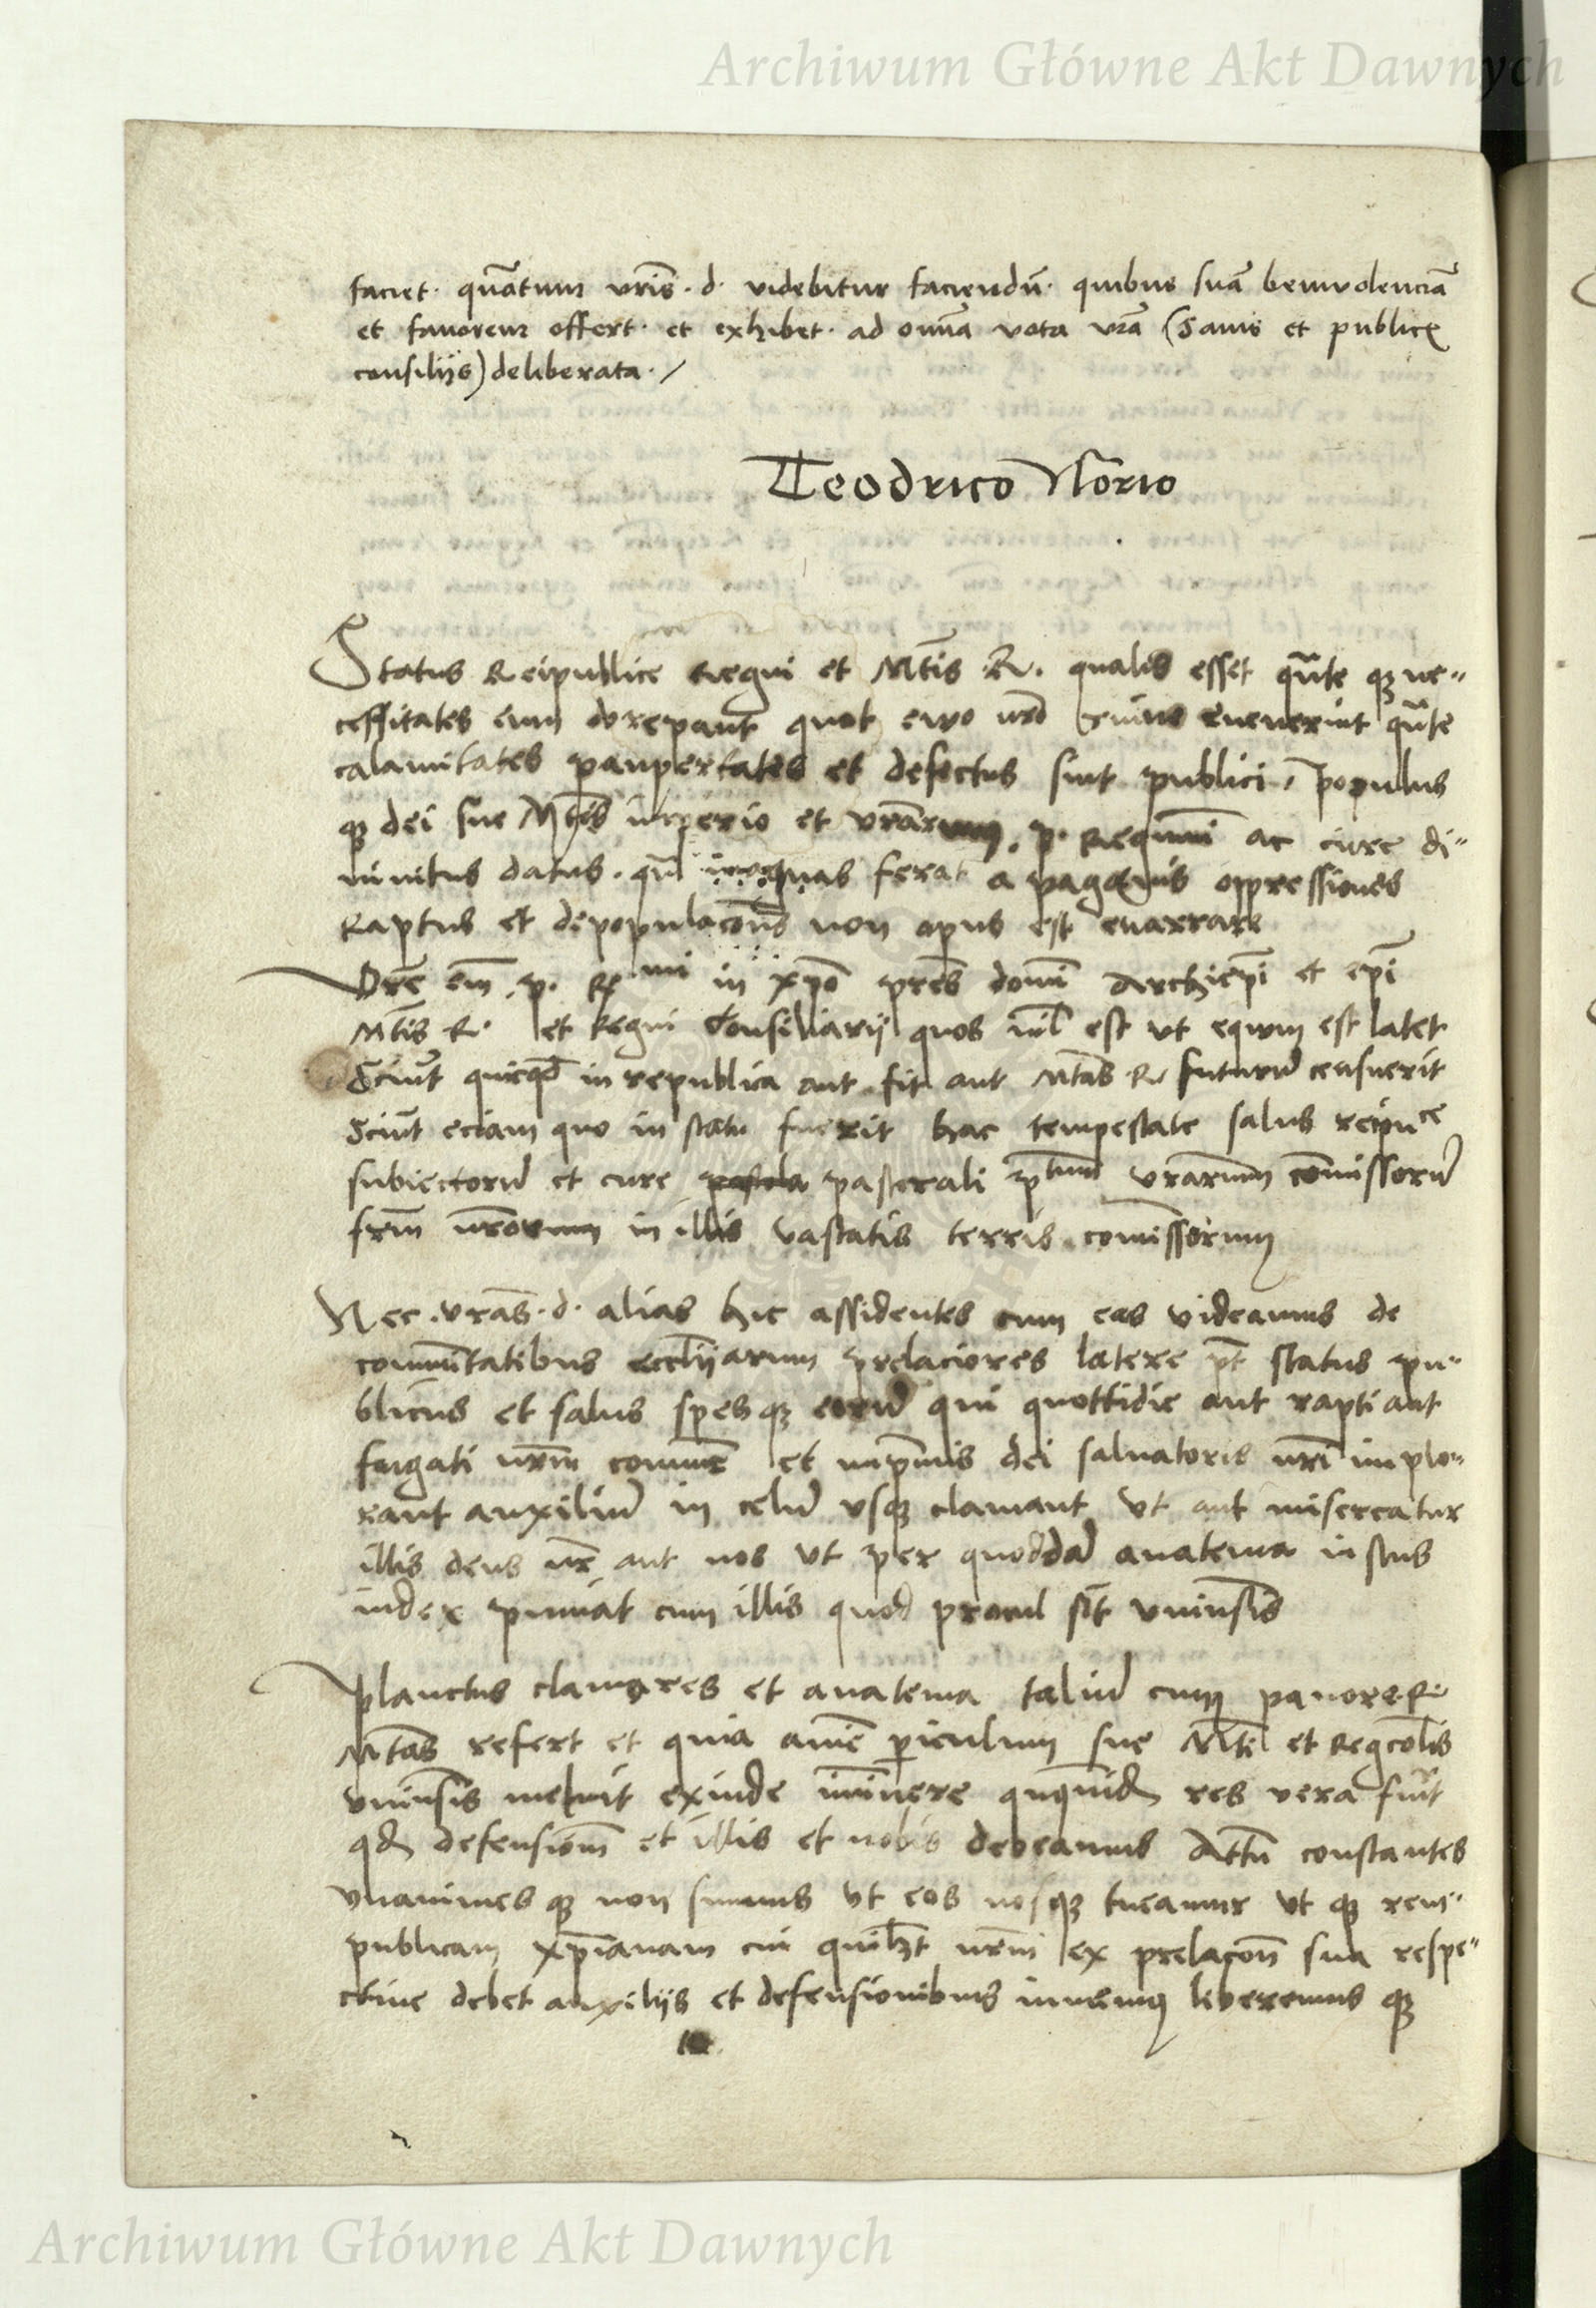 Archiwum Główne Akt Dawnych
faciet · quātum vrīs · d · videbitur faciendū · quibus suā benivolenciā
et favorem offert · et exhibet · ad omīa vota vrā (Sanis et publicę
consiliis) deliberata · /
Teodrico Norio
Status Reipublice Regni et Mtīs · R · qualis esset quāte qȝ ne-
cessitates eum quot evo nrō evenerint quāte
calamitates paupertates et defectus sint publici, populus
qȝ dei sue Mtīs imperio et vrārum · p · Regimini ac cure di-
vinitus datus · quā iniquas ferat a paganis oppressiones
Raptus et depopulacōnes non opus est enarrare
Vrē em̄ · p · Rmi in xpō prēs domī Archiepī et epī
Mtīs R · et Regni Consiliarii quos nil est ut equm est latet
Sciūt quicqd in republica aut fit aut Mtās R futurū censuerit
Sciūt eciam quo in statu fuerit hac tempestate salus reipuce
subiectorū et cure pastorali ptum vrārum commissorū
frm̄ nrōrum in illis vastatis terris comissorum
Nec · vrās · d · alias hic assidentes cum eas videamus de
communītatibus eccliarum prelaciores latere pt̄ status pu-
blicus et salus spesqȝ eorū qui quottidie aut rapti aut
fugati nrm̄ commune et inprimis dei salvatoris nrī implo-
rant auxiliū in celū usqȝ clamant ut aut misereatur
illis deus nr̄ aut nos ut per quoddā anatema iustus
iudex puniat cum illis quod procul sit univsis
Planctus clamores et anatema taliū cum pavore R
Mtās refert et quia periculum sue Mti et Regcōlis
univsis metuit exinde imīnere res vera fuit
qd defensionē et illis et nobis debeamus Attn̄ constantes
unanimesqȝ non sumus ut eos nosqȝ tueamur ut qȝ rem-
publicam xpīanam cui quilibet nrm̄ ex prelacōn sua respe-
ctive debet auxiliis et defensionibus iuvemus liberemus qȝ
Archiwum Główne Akt Dawnych